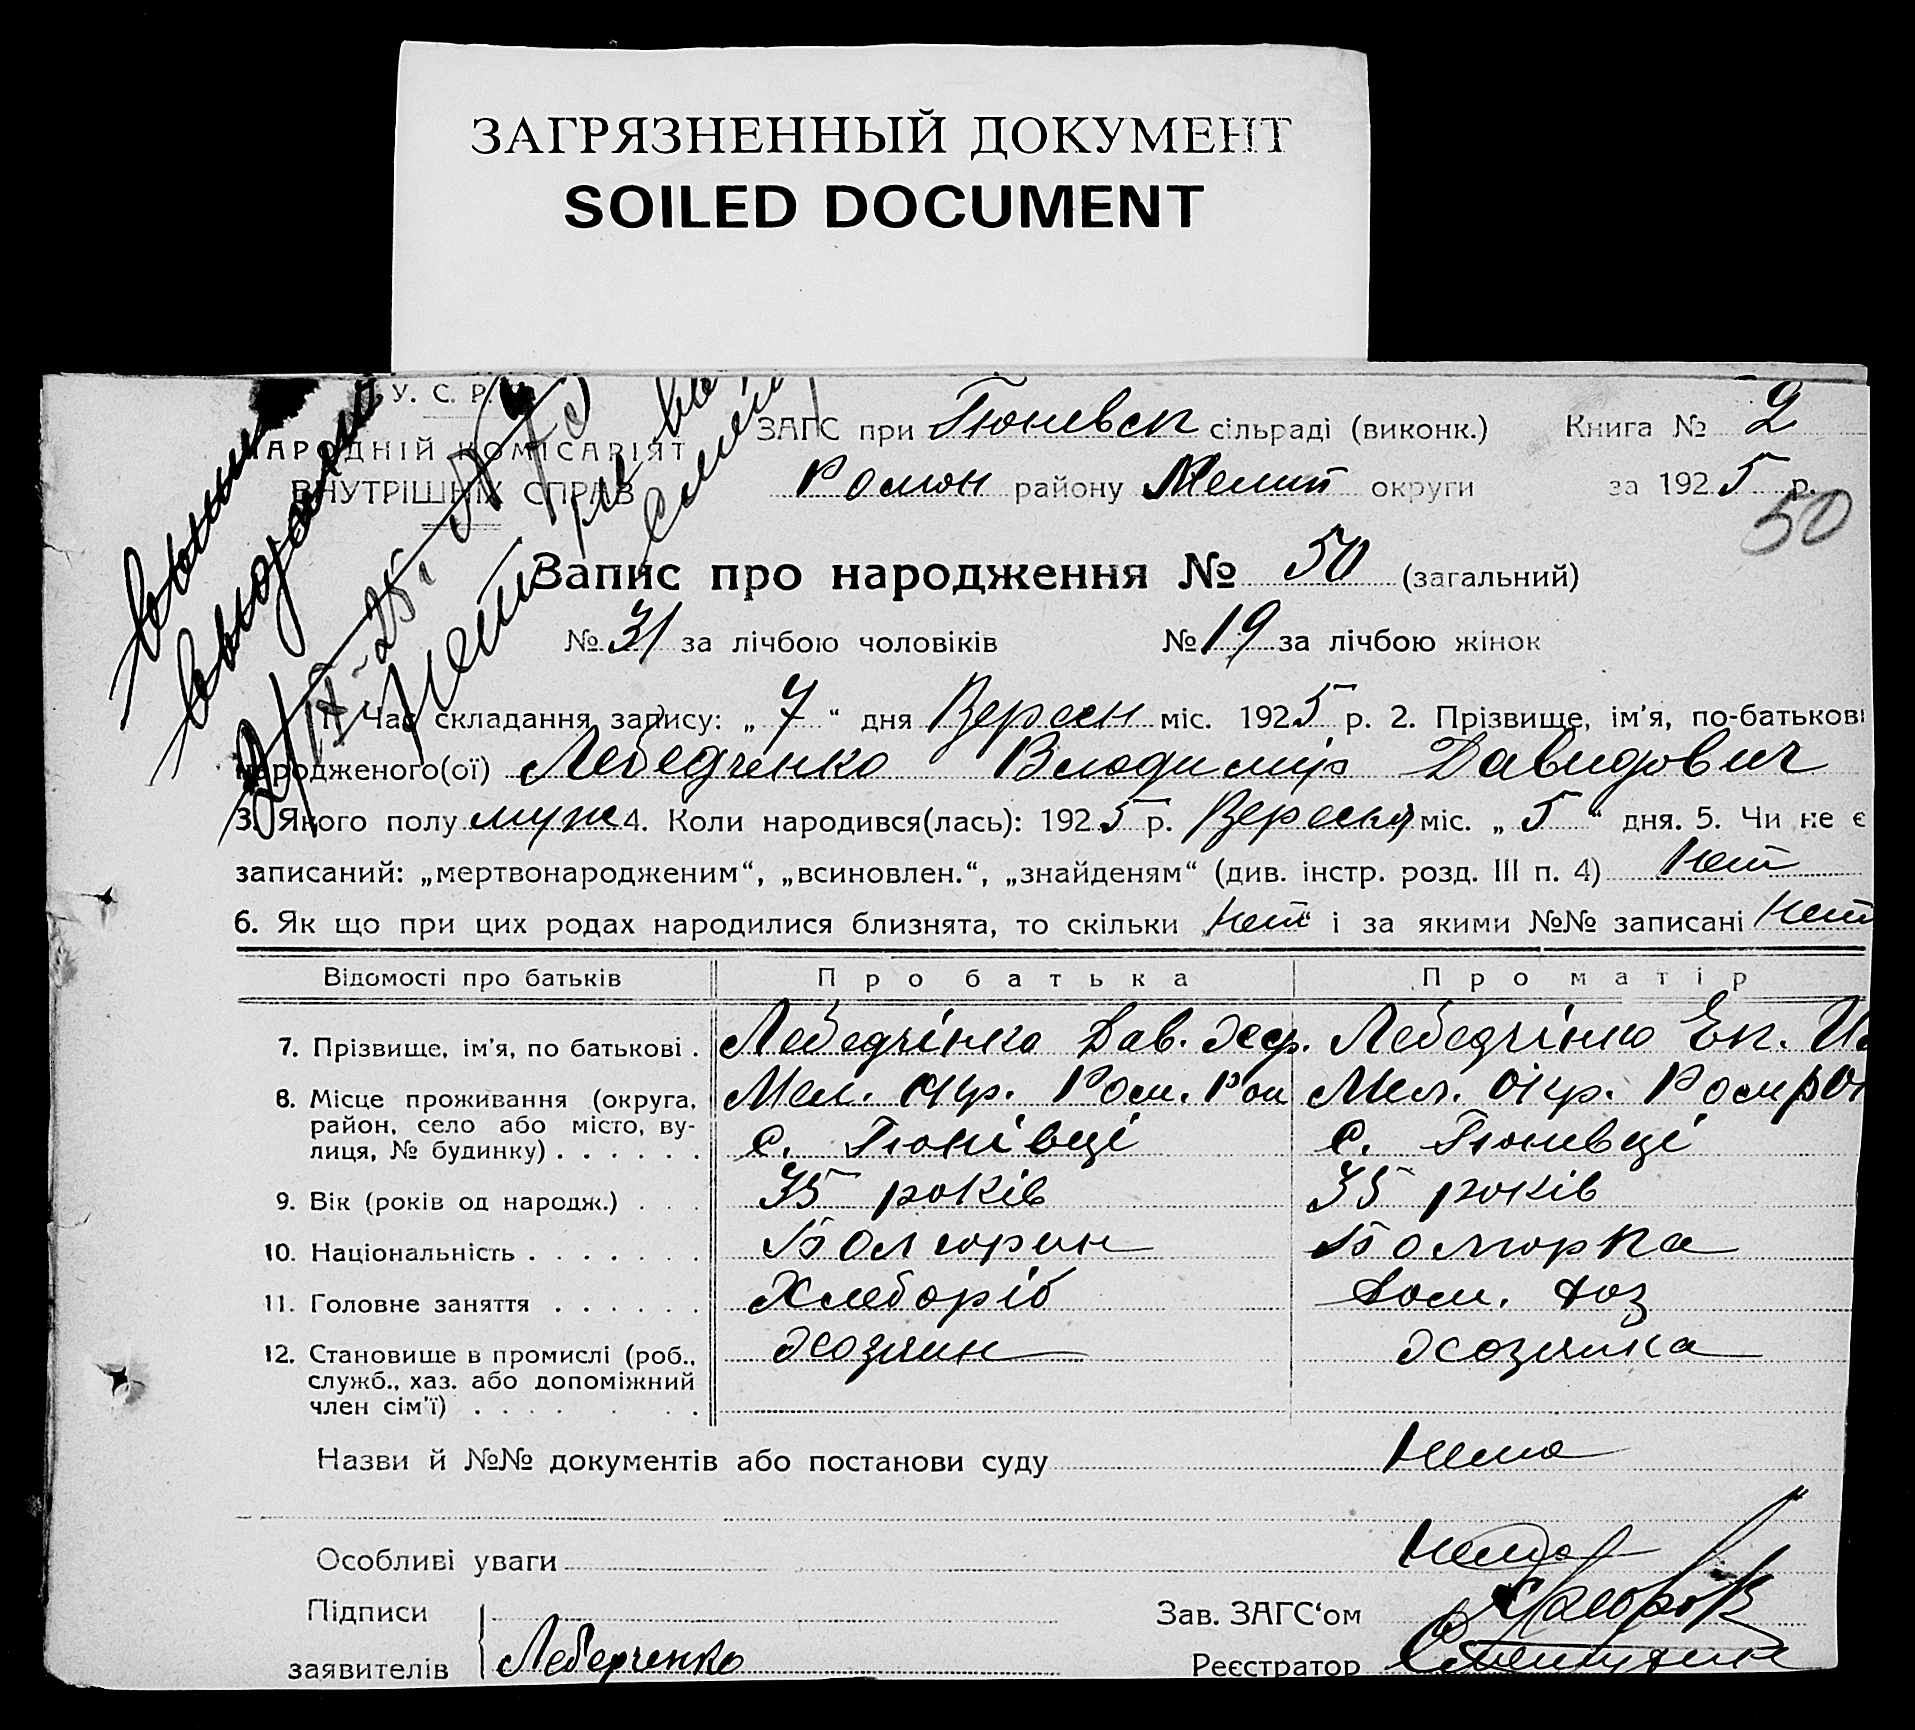 ЗАГРЯЗНЕННЫЙ ДОКУМЕНТ
SOILED DOCUMENT
У. С. Р. Р.
НАРОДНІЙ КОМІСАРІЯТ
ВНУТРІШНІХ СПРАВ
ЗАГС при Гюневск сільраді (виконк.) Книга № 2
Ромон району Мелит округи за 1925 р.
50
Запис про народження № 50 (загальний)
№ 31 за лічбою чоловіків № 19 за лічбою жінок
1. Час складання запису: „ 7 “ дня Версен міс. 1925 р. 2. Прізвище, ім’я, по-батькові
народженого(ої) Лебедченко Владимир Давидович
3. Якого полу муж 4. Коли народився(лась): 1925 р. Вересня міс. „ 5 “ дня. 5. Чи не є
записаний: „мертвонародженим“, „всиновлен.“, „знайденям“ (див. інстр. розд. III п. 4) Нет
6. Як що при цих родах народилися близнята, то скільки Нет і за якими №№ записані Нет
Відомості про батьків Про батька Про матір
7. Прізвище, ім’я, по батькові . Лебедчінко Дав. Лебедчінко Ек.
8. Місце проживання (округа, Мел. Окр. Ром. Мел. Окр. Ром
район, село або місто, ву-
лиця, № будинку) . . . . . . с. Гюнівці с. Гюневці
9. Вік (років од народж.) . . . 35 років 35 років
10. Національність . . . . . . . Болгорин Болгорка
11. Головне заняття . . . . . . Хлеборіб Дом. хоз
12. Становище в промислі (роб., Хозяин Хозяика
служб., хаз. або допоміжний
член сім’ї) . . . . . .
Назви й №№ документів або постанови суду Нема
Особливі уваги Нема
Підписи
Зав. ЗАГС‘ом
заявителів Лебедченко Реєстратор